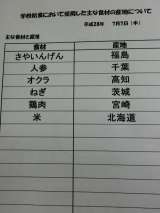 学校給食において使用した主な食材の産地について
平成28年 7月7日（木）
主な食材と産地
食材 産地
さやいんげん 福島
人参 千葉
オクラ 高知
ねぎ 茨城
鶏肉 宮崎
米 北海道